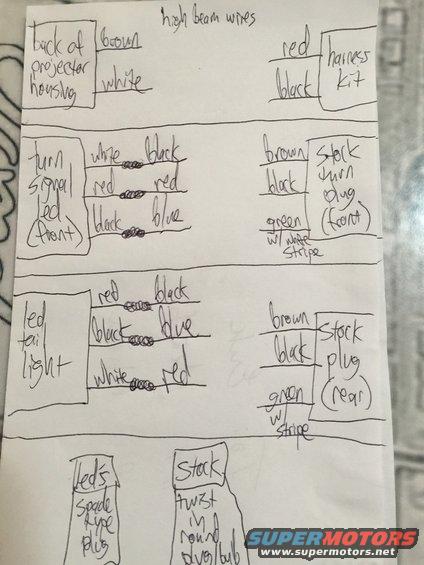 high beam wires
back of
projector
housing
brown
white
red
black
harness
kit
turn
signal
led
(front)
white black
red red
black blue
brown
black
green
w/ white
stripe
stock
turn
plug
(front)
led
tail
light
red black
black blue
white red
brown
black
green
w/
stripe
stock
plug
(rear)
led's
spade
type
plug
stock
twist
in
round
plug/bulb
SUPERMOTORS
www.supermotors.net